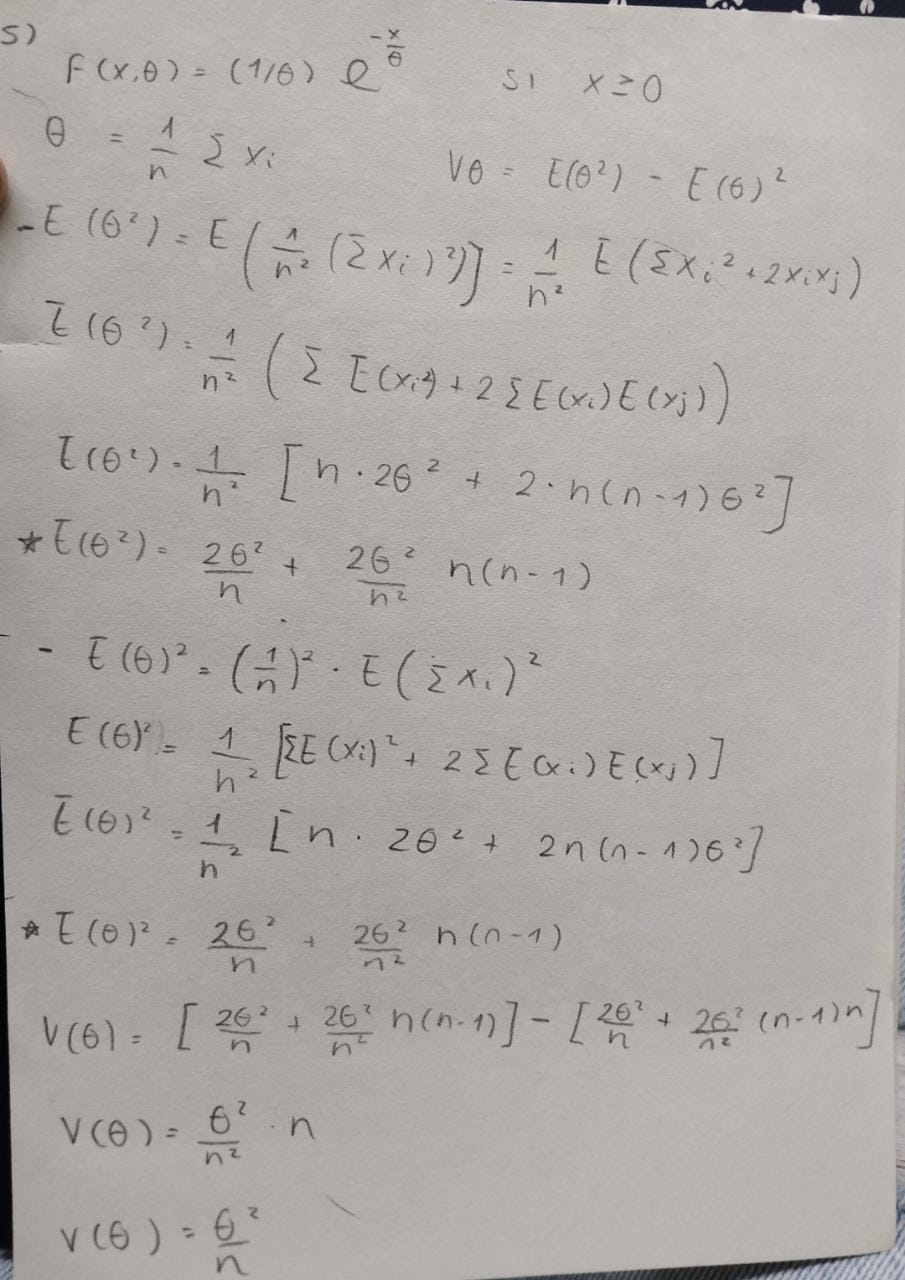 5)
F(x,θ) = (1/θ) e^{-x/θ} si x ≥ 0
θ = 1/n Σ xi Vθ = E(θ²) - E(θ)²
- E(θ²) = E(1/n² (Σxi)²)] = 1/n² E(Σxi² + 2xixj)
E(θ²) = 1/n² (Σ E(xi²) + 2ΣE(xi)E(xj))
E(θ²) = 1/n² [n · 2θ² + 2 · n(n-1)θ²]
* E(θ²) = 2θ²/n + 2θ²/n² n(n-1)
- E(θ)² = (1/n)² · E(Σxi)²
E(θ)² = 1/n² [ΣE(xi)² + 2ΣE(xi)E(xj)]
E(θ)² = 1/n² [n · 2θ² + 2n(n-1)θ²]
* E(θ)² = 2θ²/n + 2θ²/n² n(n-1)
V(θ) = [2θ²/n + 2θ²/n² n(n-1)] - [2θ²/n + 2θ²/n² (n-1)n]
V(θ) = θ²/n² · n
V(θ) = θ²/n